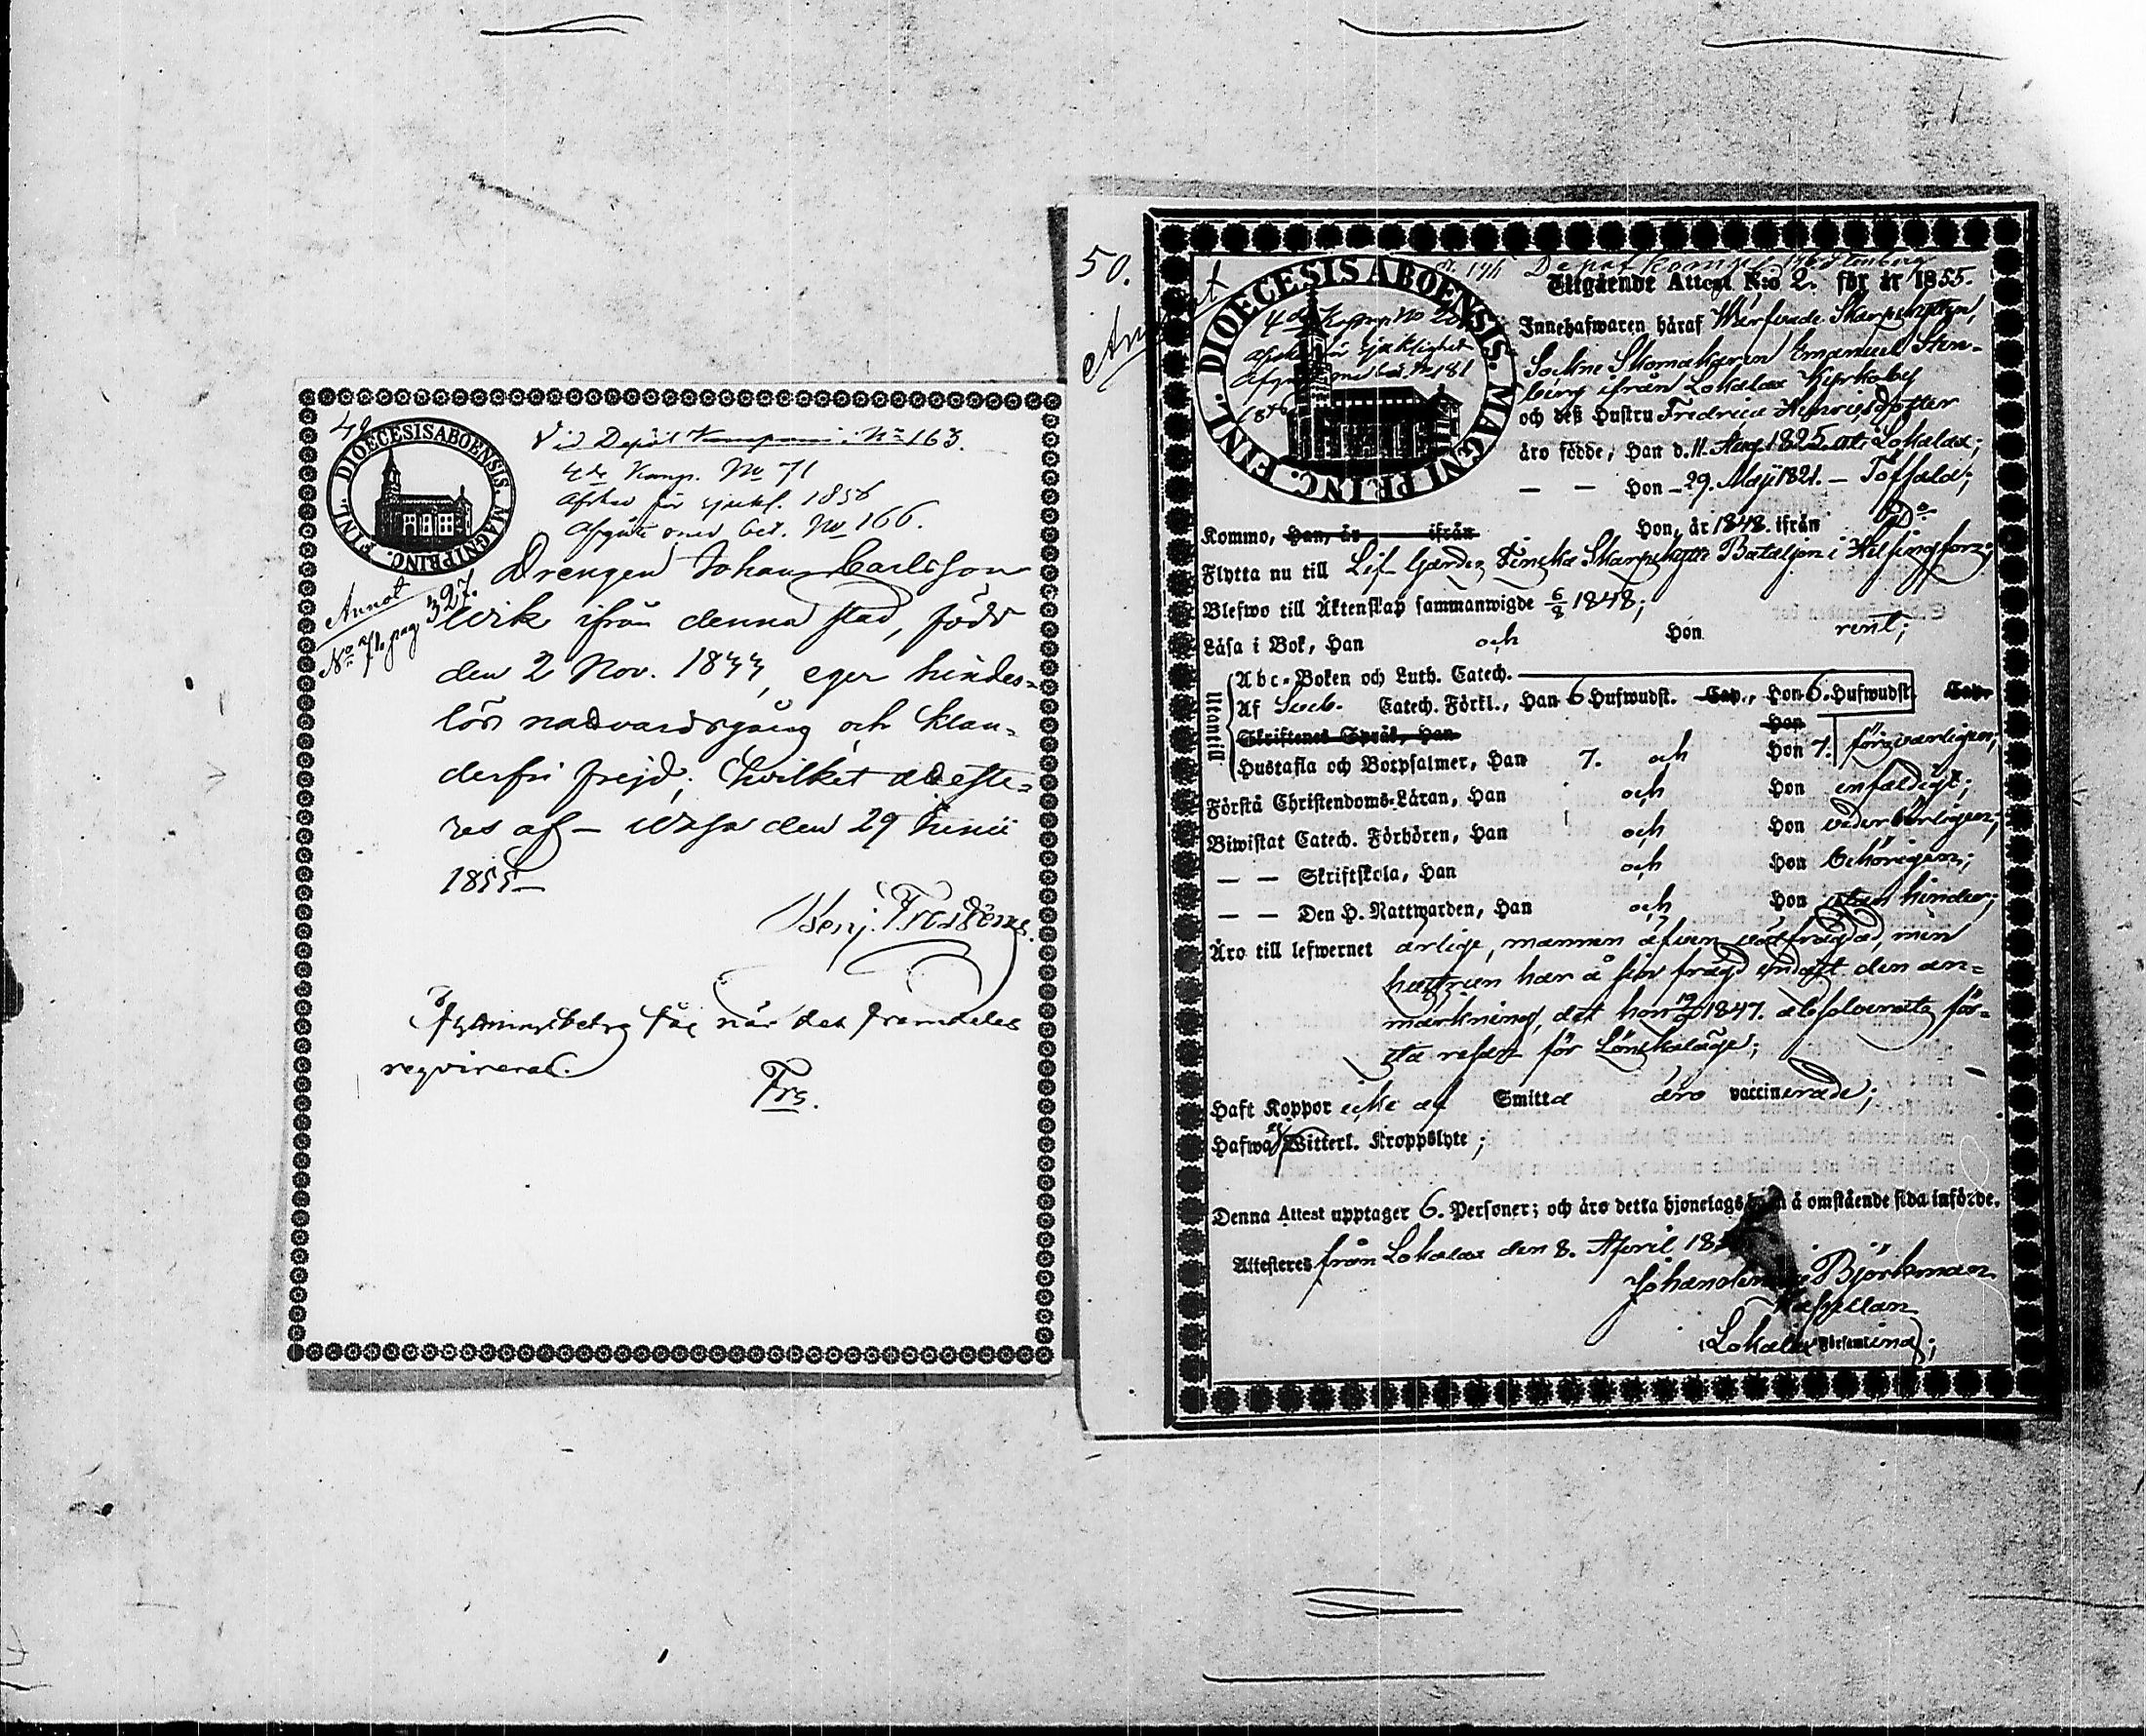 49
DIOECESIS ABOENSIS. MAGNI PRINC. FINL.
Vid Depôt Kompani. No 163.
4de Komp. No 71
Afsked för sjukl. 1856
Afgått med bet. No 166.
Annot
No 71. pag 327.
Drengen Johan Carlsson
Wik ifrån denna stad, född
den 2 Nov. 1833, eger hinders-
lös nadvardsgång och klan-
derfri frejd; hvilket atteste-
res af — Wasa den 29 Junii
1855 —
Benj. Frosterus.
Flyttningsbetyg när det framdeles
requireras.
Frs.
50.
Annot
DIOECESIS ABOENSIS. MAGNI PRINC. FINL.
4de Komp No
Afsked för sjuklighet
Afgått med bet. No 181
1856
Depot Komp
Utgående Attest N:o 2. för år 1855.
Innehafwaren häraf Wärfvade Skarpskytten,
Sockne Skomakaren Emanuel Sten-
berg ifrån Lokalax Kyrkoby
och deß Hustru Fredrica Henricsdotter
äro födde, Han d. 11. Aug. 1825. uti Lokalax;
— — Hon - 29. Maji 1821. — Töfsala;
Kommo, Han, år ifrån Hon, år 1848. ifrån Do
Flytta nu till Lif Gardes Finska Skarpskytte Bataljon i Helsingfors;
Blefwo till Äktenskap sammanwigde 6/8 1848;
Läsa i Bok, Han och Hon rent;
Utantill
Abc-Boken och Luth. Catech.
Af Sveb. Catech. Förkl., Han 6 Hufwudst. Cap., Hon 6. Hufwudst. Cap.
Skriftenes Språk, Han Hon
Hustafla och Botpsalmer, Han 7. och Hon 7. försvarligen;
Förstå Christendoms-Läran, Han och Hon enfaldigt;
Biwistat Catech. Förhören, Han och Hon vederbörligen;
— — Skriftskola, Han och Hon behörigen;
— — Den H. Nattwarden, Han och Hon utan hinder;
Äro till lefwernet ärlige, mannen äfven välfrägdad, men
hustrun har å sin frägd endast den an-
märkning, det hon 19/9 1847. absolverats för-
sta resan för Lönskaläge;
Haft Koppor icke af Smitta äro vaccinerade;
Hafwa ej Witterl. Kroppslyte;
Denna Attest upptager 6. Personer; och äro detta hjonelags barn å omstående sida införde.
Attesteres från Lokalax den 8. April 18
Björkman
Kapellan
i Lokalax Församling;